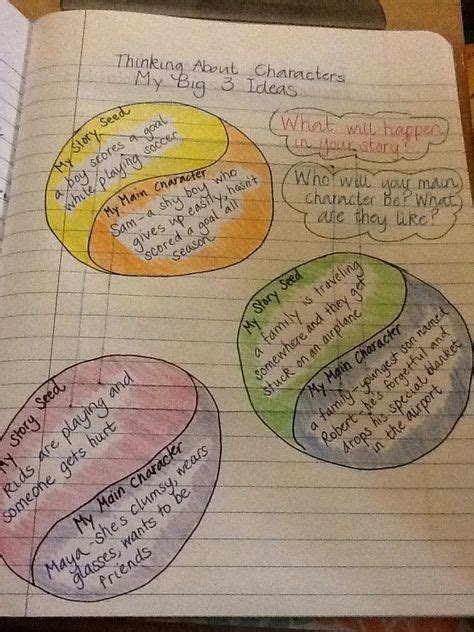 Thinking About Characters
My Big 3 Ideas
My Story Seed
a boy scores a goal
while playing soccer
My Main Character
Sam - a shy boy who
gives up easily, hasn't
scored a goal all
season
What will happen
in your story?
Who will your main
character be? What
are they like?
My Story Seed
a family is traveling
somewhere and they get
stuck on an airplane
My Main Character
a family - youngest son named
Robert - he's forgetful and
drops his special blanket
in the airport
My Story Seed
Kids are playing and
someone gets hurt
My Main Character
Maya - she's clumsy, wears
glasses, wants to be
friends